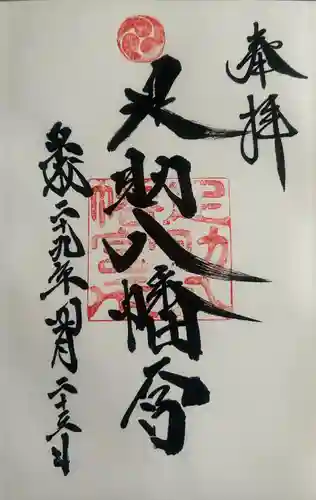 奉拝
足助八幡宮
平成二十九年四月二十六日